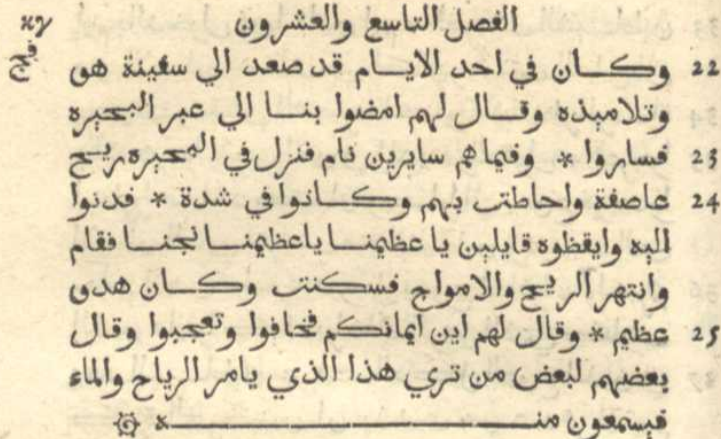 الفصل التاسع والعشرون
22 وكان في احد الايام قد صعد الي سفينة هو
وتلاميذه وقال لهم امضوا بنا الي عبر البحيره
23 فساروا * وفيما هم سايرين نام فنزل في البحيره ريح
24 عاصفة واحاطت بهم وكانوا في شدة * فدنوا
اليه وايقظوه قايلين يا عظيمنا ياعظيمنا نجنا فقام
وانتهر الريح والامواج فسكنت وكان هدى
25 عظيم * وقال لهم اين ايمانكم فخافوا وتعجبوا وقال
بعضهم لبعض من تري هذا الذي يامر الرياح والماء
فيسمعون منه